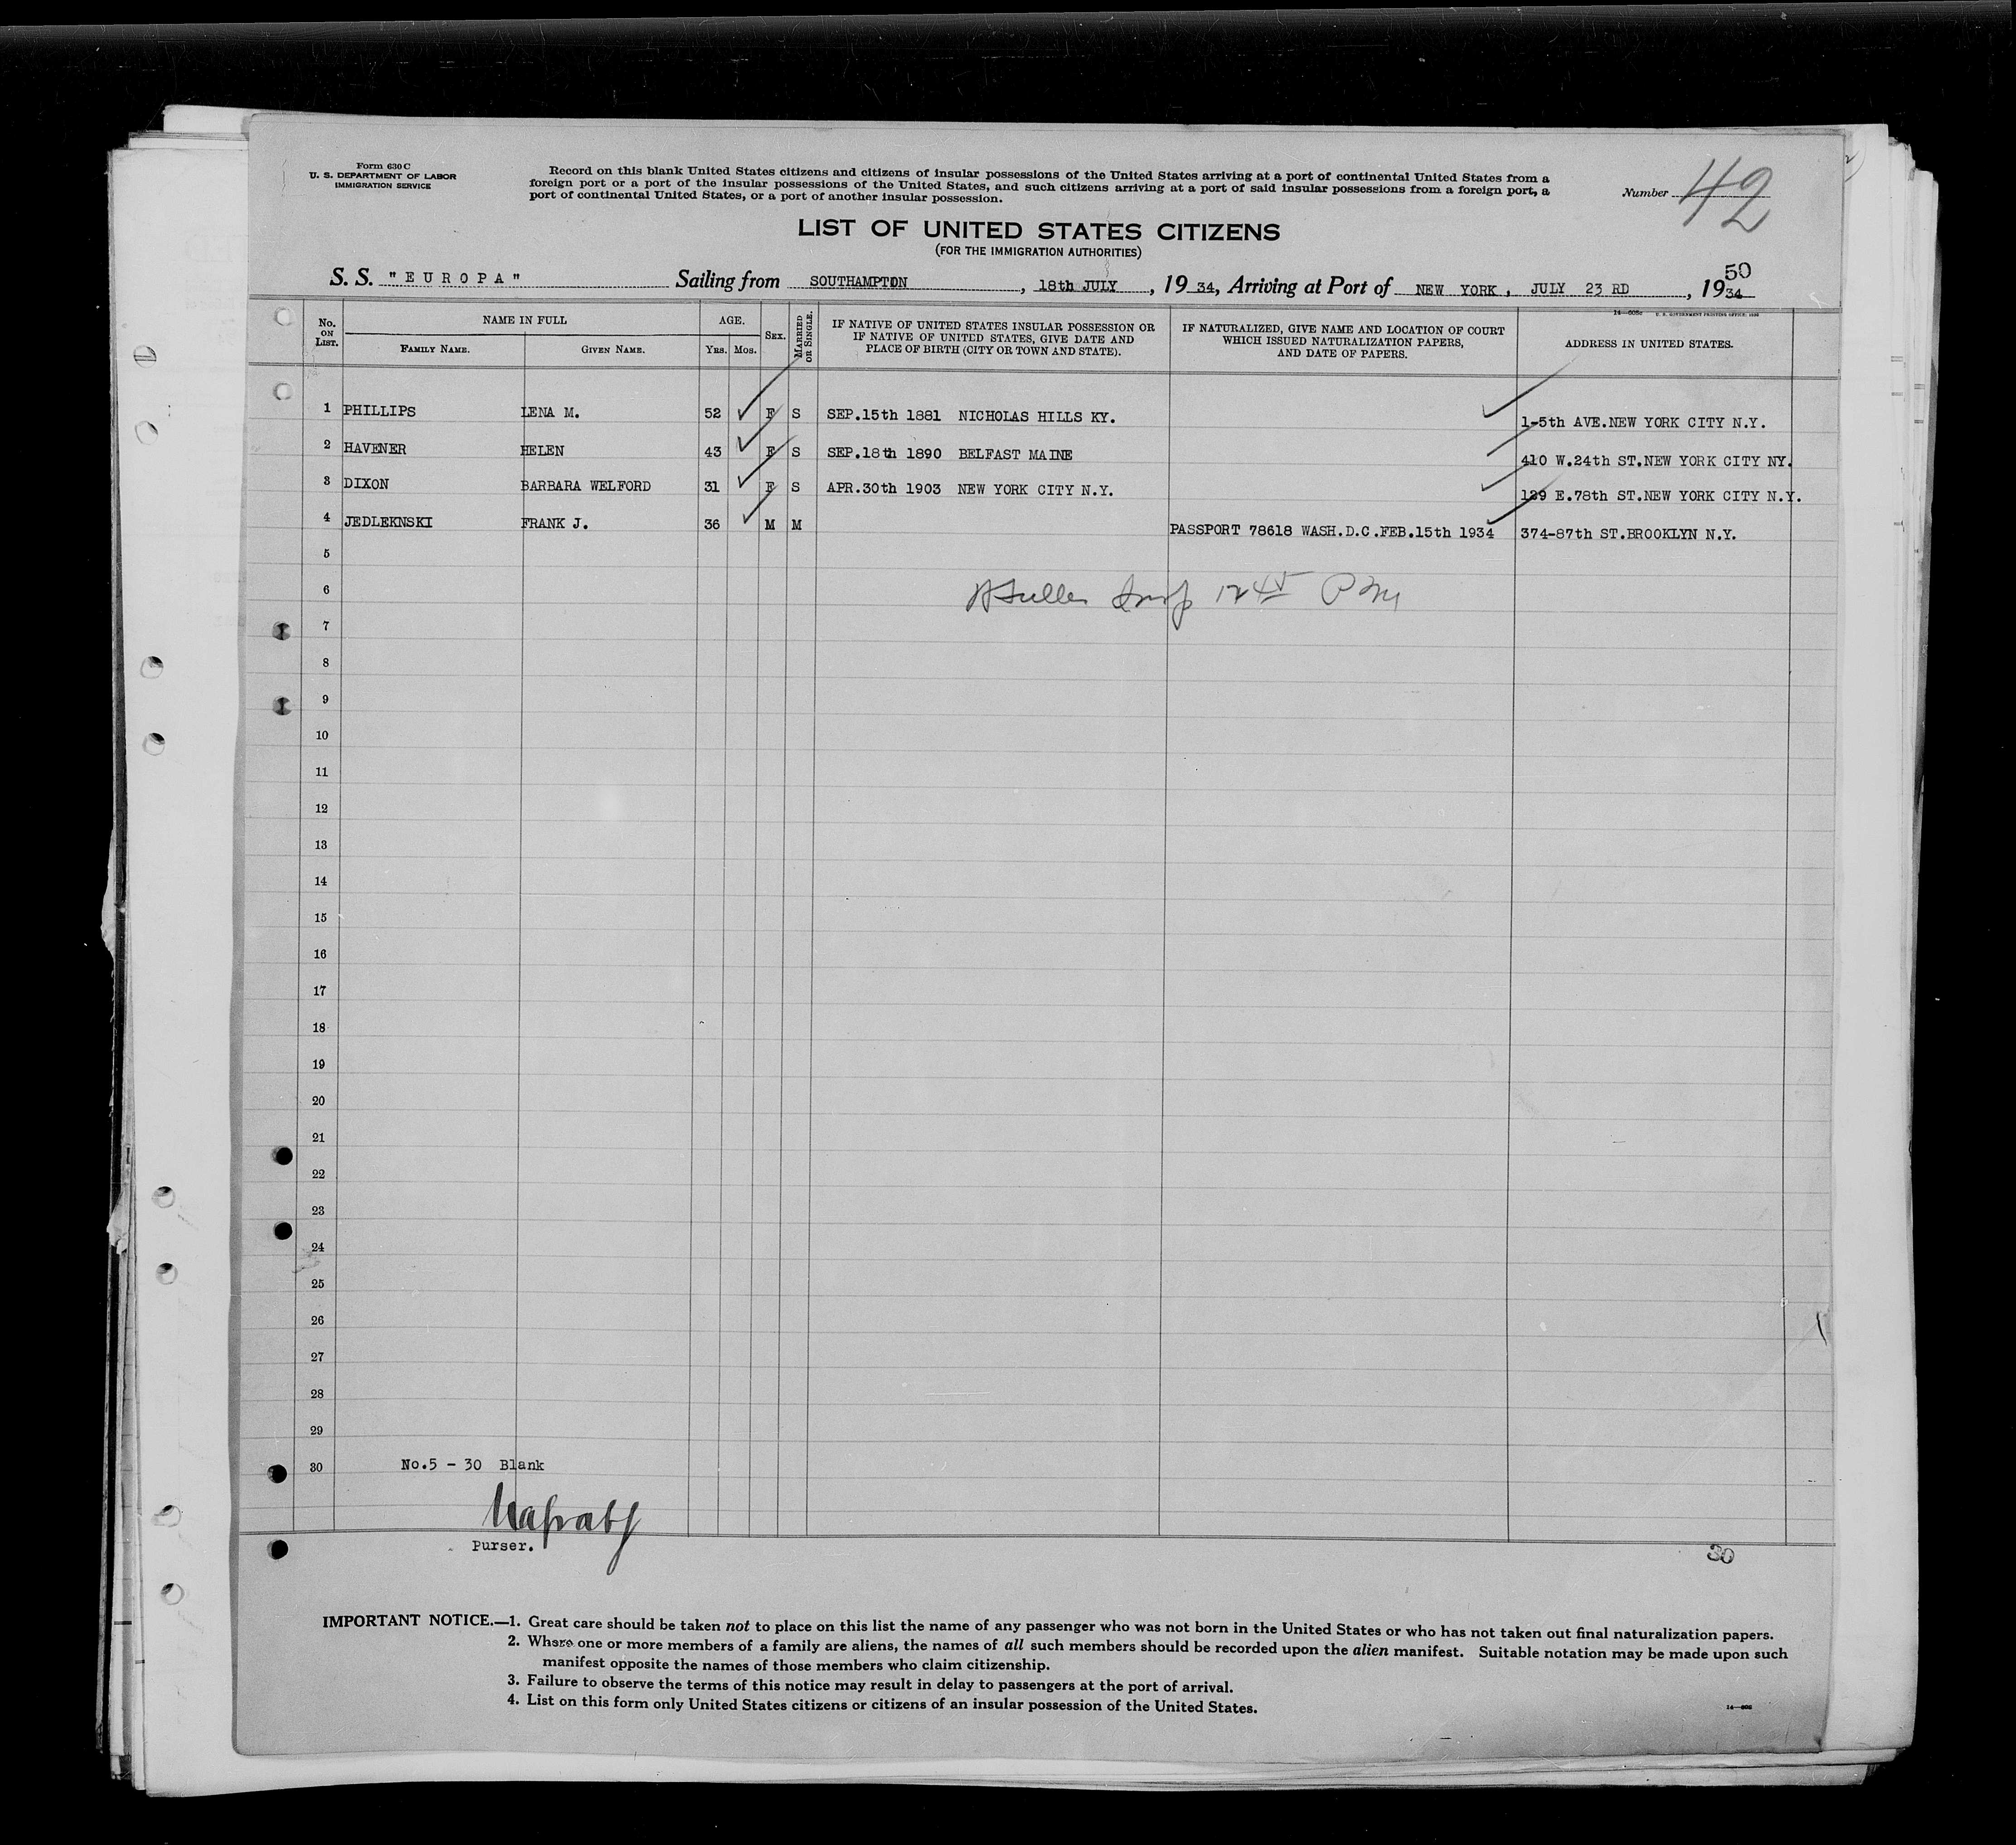 Form 630 C
U. S. DEPARTMENT OF LABOR
IMMIGRATION SERVICE
Record on this blank United States citizens and citizens of insular possessions of the United States arriving at a port of continental United States from a
foreign port or a port of the insular possessions of the United States, and such citizens arriving at a port of said insular possessions from a foreign port, a
port of continental United States, or a port of another insular possession.
Number 42
LIST OF UNITED STATES CITIZENS
(FOR THE IMMIGRATION AUTHORITIES)
50
S. S. "EUROPA" Sailing from SOUTHAMPTON, 18th JULY, 19 34, Arriving at Port of NEW YORK, JULY 23 RD, 19 34
No. ON LIST. NAME IN FULL AGE. SEX. MARRIED OR SINGLE. IF NATIVE OF UNITED STATES INSULAR POSSESSION OR IF NATIVE OF UNITED STATES, GIVE DATE AND PLACE OF BIRTH (CITY OR TOWN AND STATE). IF NATURALIZED, GIVE NAME AND LOCATION OF COURT WHICH ISSUED NATURALIZATION PAPERS, AND DATE OF PAPERS. ADDRESS IN UNITED STATES.
FAMILY NAME. GIVEN NAME. YRS. MOS.
1 PHILLIPS LENA M. 52 F S SEP.15th 1881 NICHOLAS HILLS KY. 1-5th AVE.NEW YORK CITY N.Y.
2 HAVENER HELEN 43 F S SEP.18th 1890 BELFAST MAINE 410 W.24th ST.NEW YORK CITY NY.
3 DIXON BARBARA WELFORD 31 F S APR.30th 1903 NEW YORK CITY N.Y. 129 E.78th ST.NEW YORK CITY N.Y.
4 JEDLEKNSKI FRANK J. 36 M M PASSPORT 78618 WASH.D.C.FEB.15th 1934 374-87th ST.BROOKLYN N.Y.
5
6 Insp 12 45 PM
7
8
9
10
11
12
13
14
15
16
17
18
19
20
21
22
23
24
25
26
27
28
29
30 No.5 - 30 Blank
Purser.
30
IMPORTANT NOTICE.—1. Great care should be taken not to place on this list the name of any passenger who was not born in the United States or who has not taken out final naturalization papers.
2. Where one or more members of a family are aliens, the names of all such members should be recorded upon the alien manifest. Suitable notation may be made upon such
manifest opposite the names of those members who claim citizenship.
3. Failure to observe the terms of this notice may result in delay to passengers at the port of arrival.
4. List on this form only United States citizens or citizens of an insular possession of the United States.